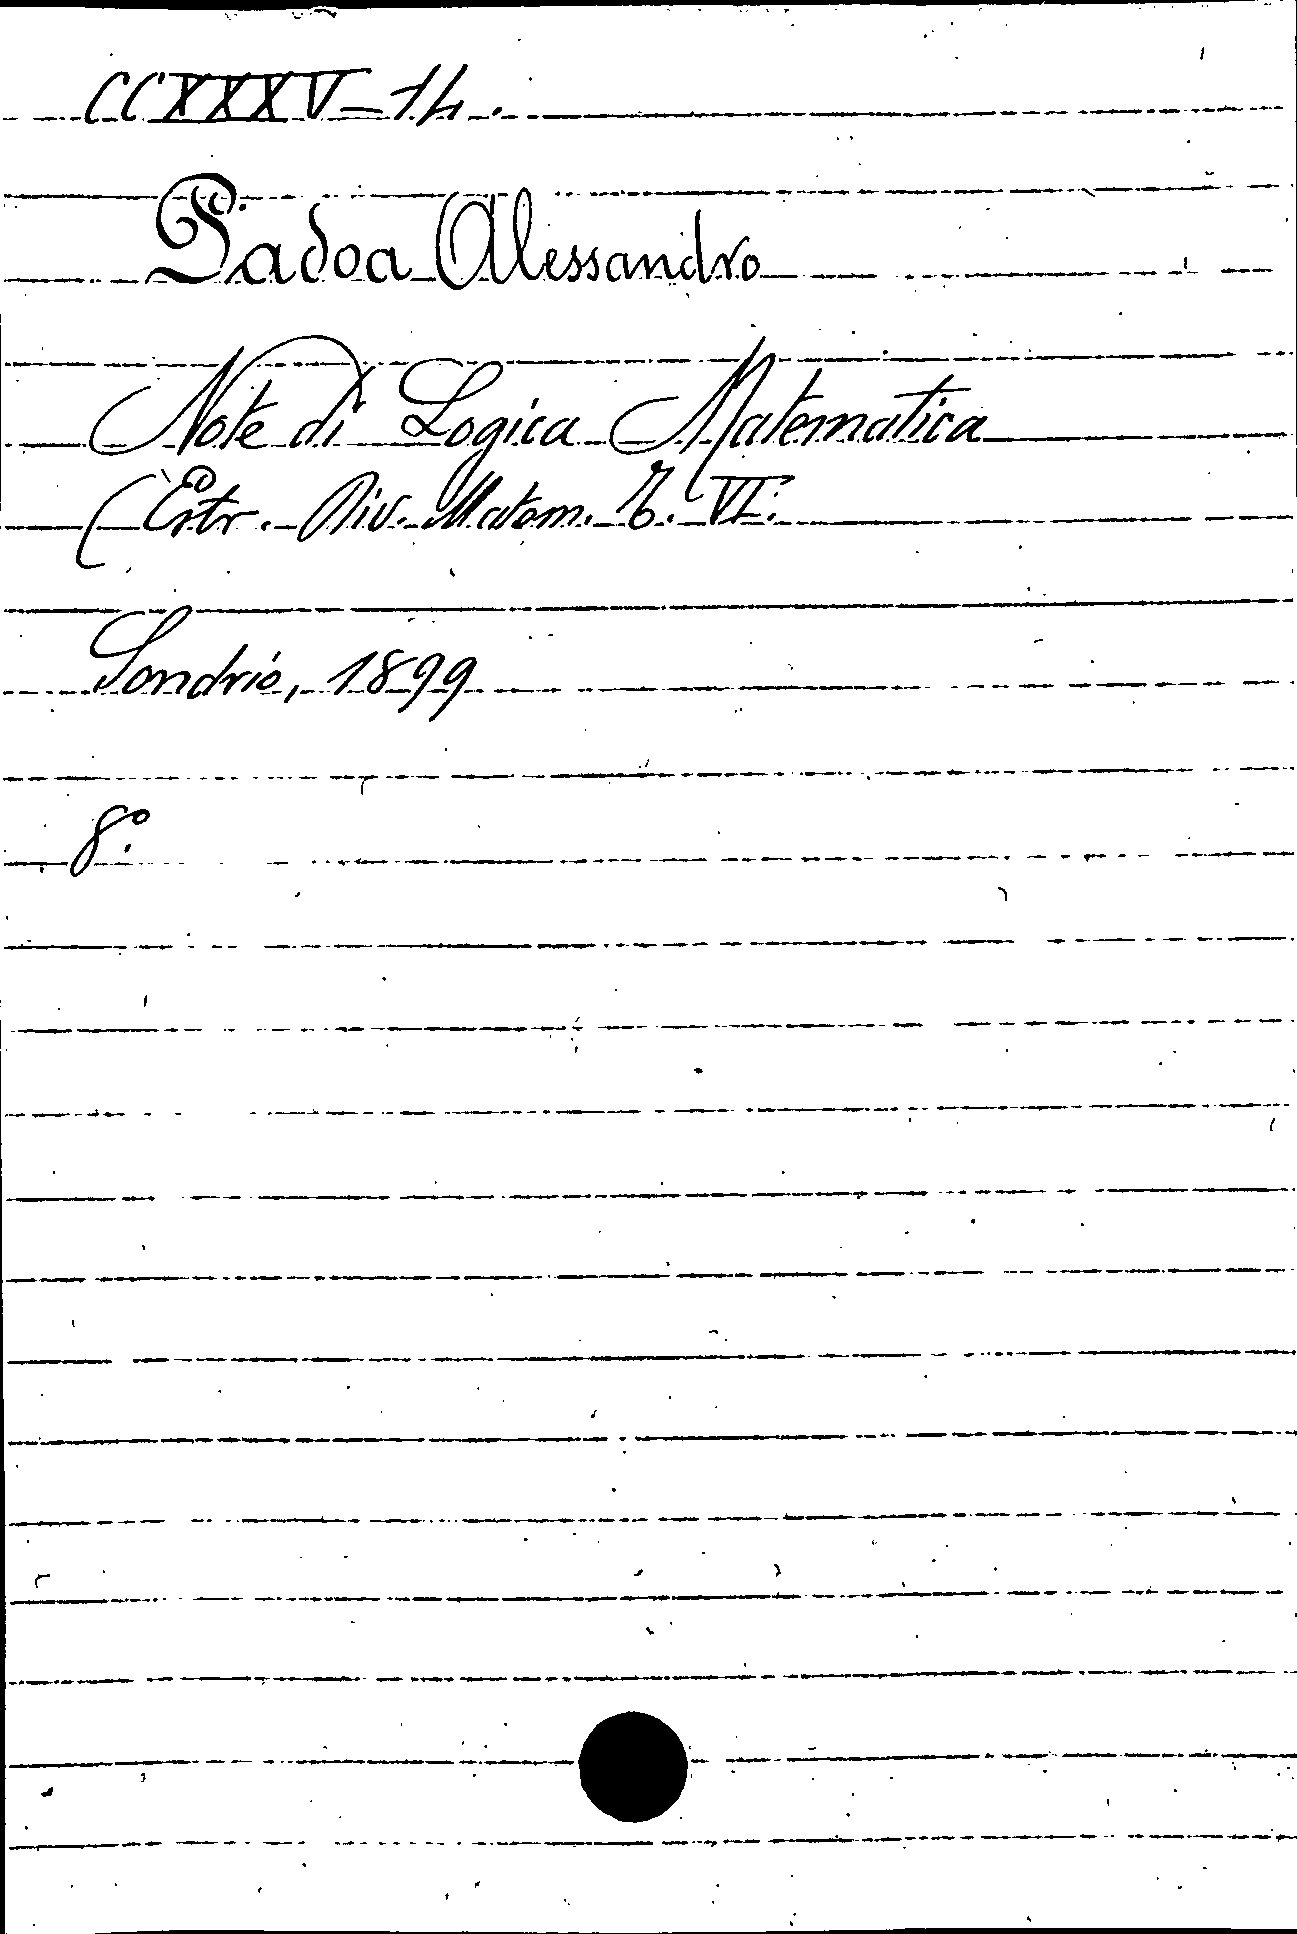 CCXXXV-14.
Padoa Alessandro
Note di Logica Matematica
(Estr. Riv. Matem. T. VI:
Sondrio, 1899
8°.